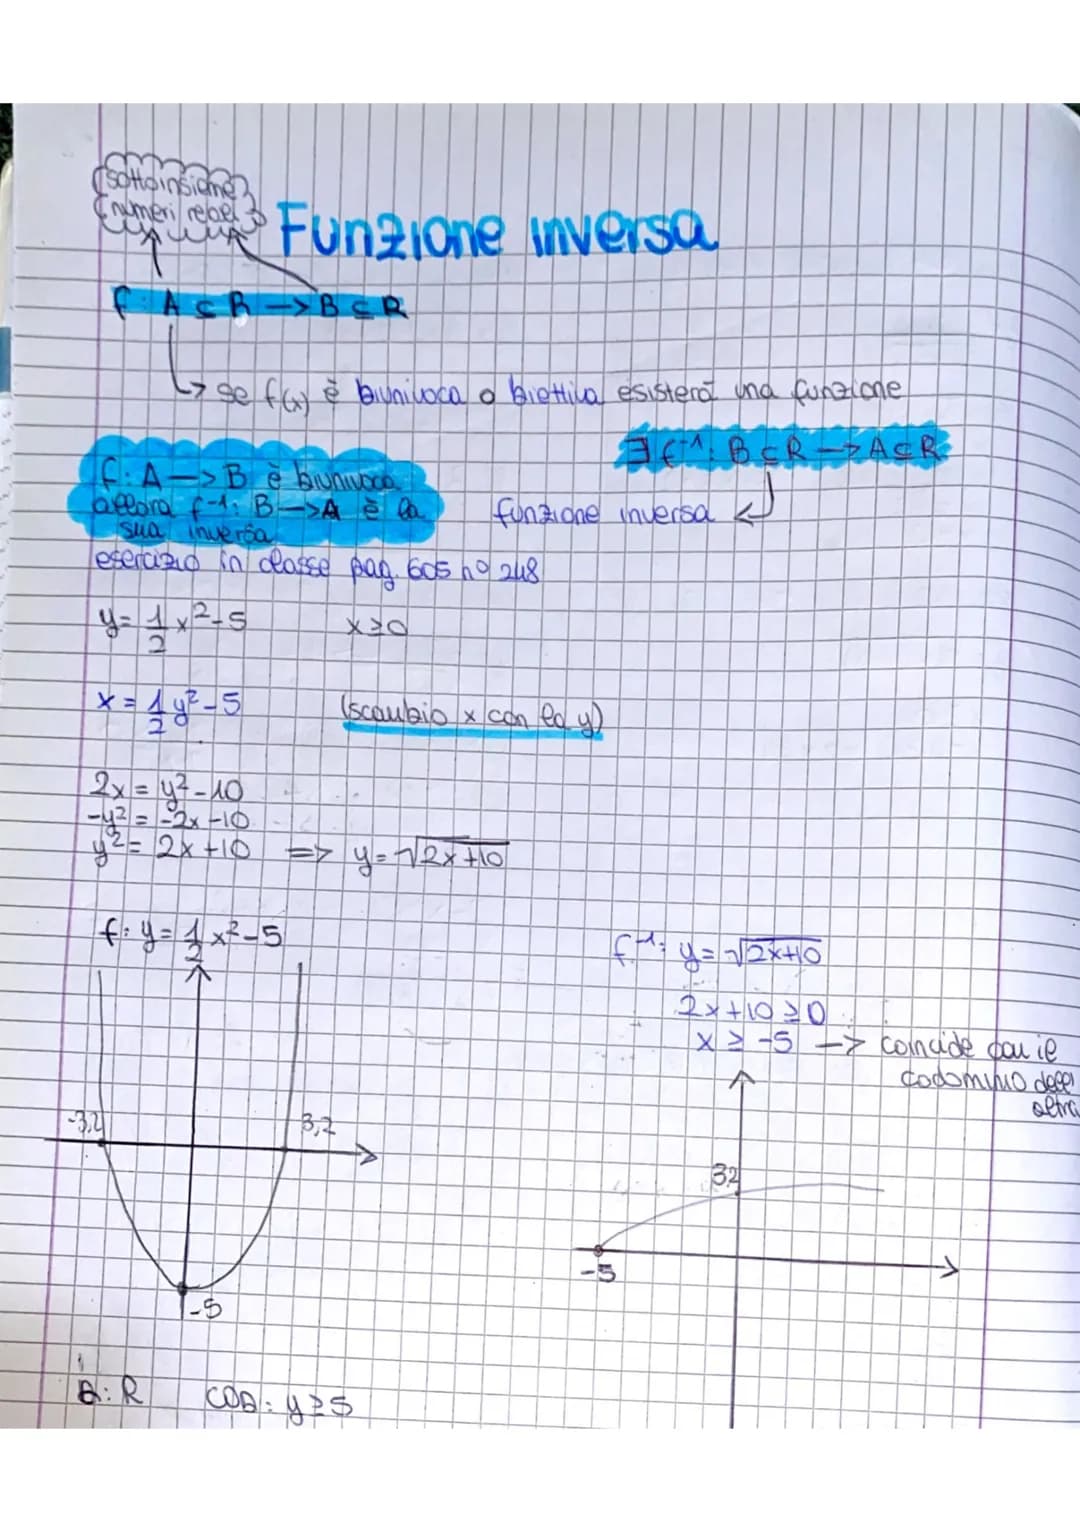 sottoinsieme
numeri reali
Funzione inversa
f: A ⊆ R —> B ⊆ R
↳ se f(x) è biunivoca o biettiva esisterà una funzione
∃ f⁻¹: B ⊆ R —> A ⊆ R
f: A —> B è biunivoca
allora f⁻¹: B —> A è la
sua inversa
funzione inversa
esercizio in classe pag. 605 n° 248
y = 1/2 x² - 5 x ≥ 0
x = 1/2 y² - 5 (scambio x con la y)
2x = y² - 10
-y² = -2x - 10
y² = 2x + 10 => y = √2x+10
f: y = 1/2 x² - 5
f⁻¹: y = √2x+10
2x + 10 ≥ 0
x ≥ -5 —> coincide con il
codominio dell'
altra
-3,2
3,2
-5
3,2
-5
D: R COD: y ≥ 5